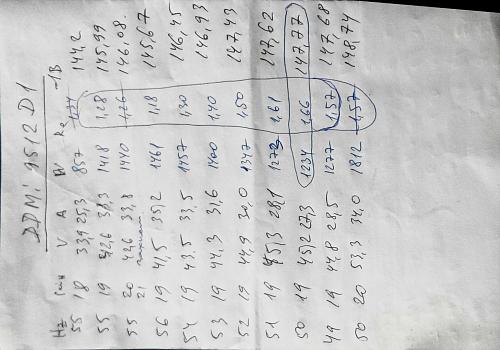 DDMi 9512 D1
Hz V A W Rg -1B
55 18 33,9 25,3 857 144,2
55 19 42,6 33,3 1418 1,28 145,99
55 20 42,6 33,8 1440 1,26 146,08
21
56 19 41,5 35,2 1461 1,18 145,67
54 19 43,5 33,5 1457 1,30 146,45
53 19 44,3 31,6 1400 1,40 146,93
52 19 44,9 30,0 1347 1,50 147,43
51 19 45,3 28,1 1272 1,61 147,62
50 19 45,2 27,3 1234 1,66 147,77
49 19 44,8 28,5 1277 1,57 147,68
50 20 53,3 34,0 1812 1,57 148,74